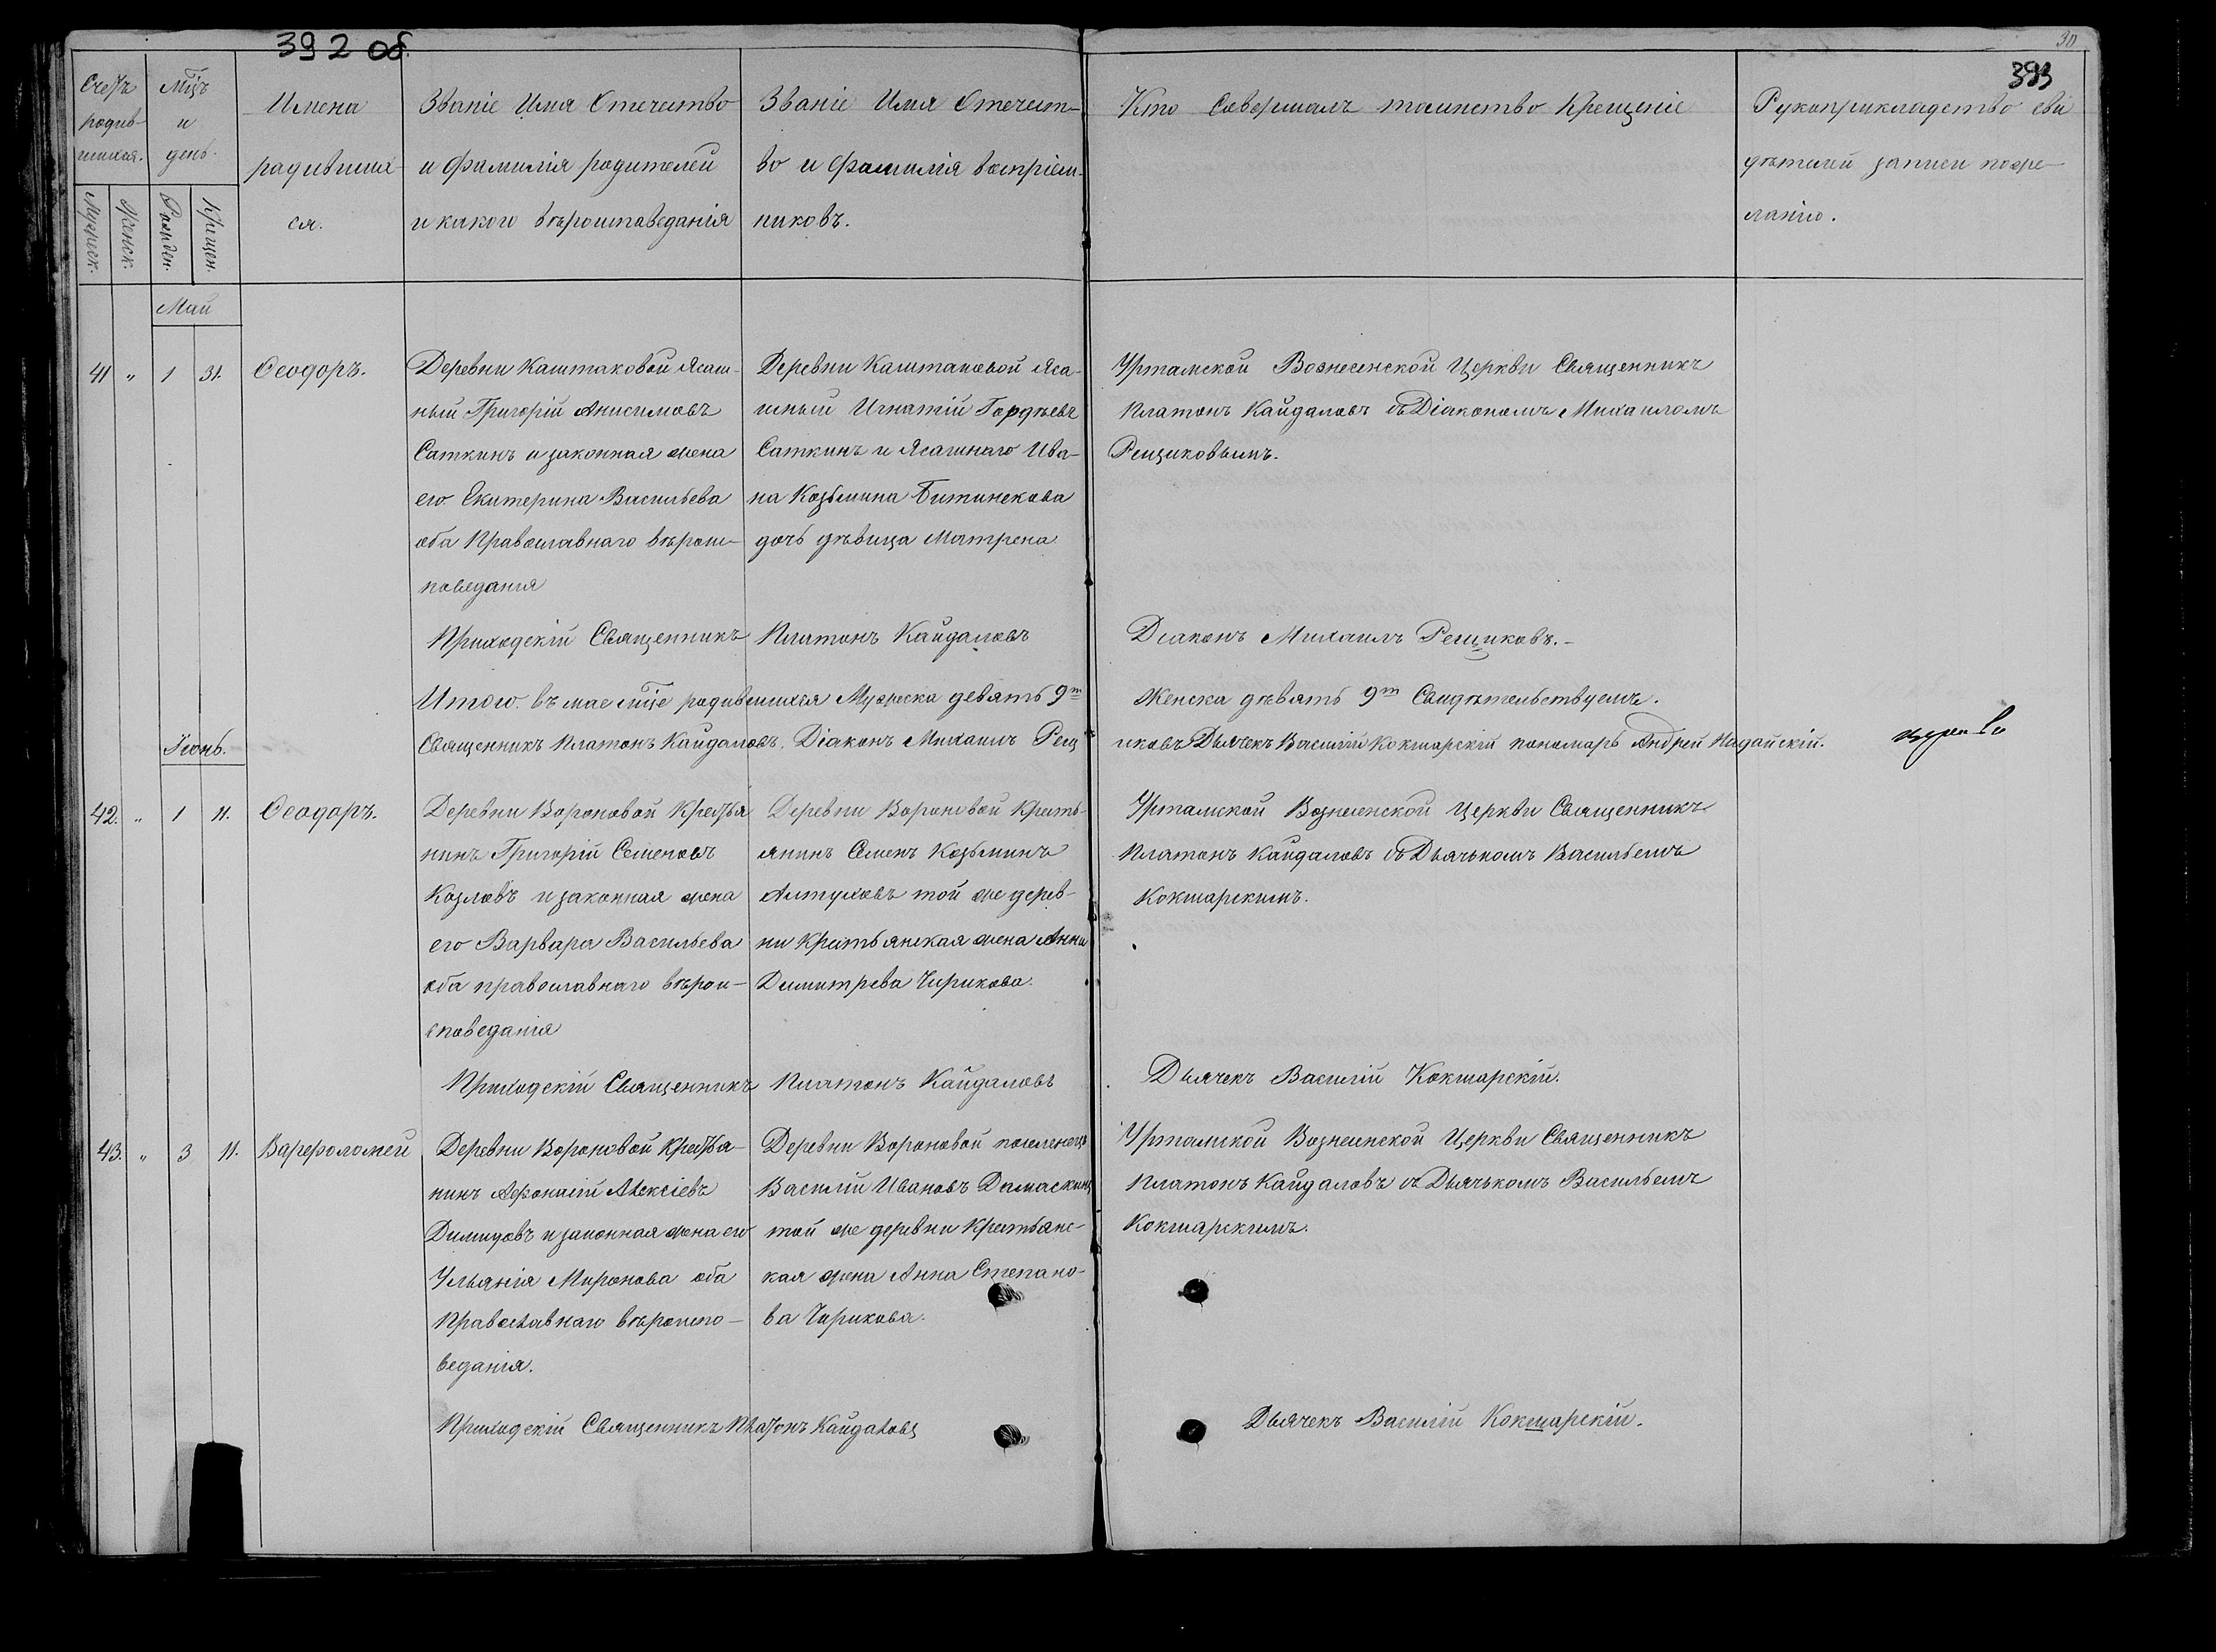 392 об.
30
393
Счетъ родив-шихся.
Мужеск.
Женск.
Мцъ и день.
Рожден.
Крещен.
Имена
радивших
ся.
Званіе Имя Отечество
и фамилія родителей
и какого вѣроисповеданія
Званіе Имя Отечест-
во и фамилія воспріем-
никовъ.
Кто Савершалъ таинство Крещеніе
Рукоприкладство сви
дѣтелей записи по же-
ланію.
Май
41 " 1 31. Ѳеодоръ.
Деревни Каштаковой Ясаш-
ный Григорій Анисимовъ
Саткинъ и законная жена
его Екатерина Васильева
оба Православнаго вѣроис-
поведанія
Деревни Каштаковой Яса-
шный Игнатій Гордѣевъ
Саткинъ и Ясашнаго Ива-
на Козьмина Битинекова
дочь дѣвица Матрена
Уртамской Вознесенской Церкви Священникъ
Платонъ Кайдаловъ съ Діакономъ Михаиломъ
Рещиковымъ.
Приходскій Священникъ Платонъ Кайдаловъ Діаконъ Михаилъ Рещиковъ.-
Итого въ мае мцѣ радившихся Мужеска девять 9т Женска дѣвять 9т Свидѣтельствуемъ.
Священникъ Платонъ Кайдаловъ. Діаконъ Михаилъ Рещ иковъ Дьячекъ Василій Кокшарскій пономарь Андрей Надайскій.
Іюнь.
42. " 1 11. Ѳеодоръ.
Деревни Вороновой Крестья
нинъ Григорій Семеновъ
Козловъ и законная жена
его Варвара Васильева
оба православнаго вѣрои-
споведанія
Деревни Вороновой Кресть-
янинъ Семенъ Козьминъ
Алтуховъ той же дерев-
ни Крестьянская жена Анна
Димитрева Чирикова.
Уртамской Вознесенской Церкви Священникъ
Платонъ Кайдаловъ съ Дьячькомъ Васильемъ
Кокшарскимъ.
Приходскій Священникъ Платонъ Кайдаловъ Дьячекъ Василій Кокшарскій.
43. " 3 11. Варфоломей
Деревни Вороновой Крестья-
нинъ Афонасій Алексіевъ
Димидовъ и законная жена его
Ульянія Миронова оба
Православнаго вѣроиспо-
веданія.
Деревни Вороновой поселенецъ
Василій Ивановъ Дамаскинъ
той же деревни Крестьянс-
кая жена Анна Степано-
ва Чирикова.
Уртамской Вознесенской Церкви Священникъ
Платонъ Кайдаловъ съ Дьячькомъ Васильемъ
Кокшарскимъ.
Приходскій Священникъ Платонъ Кайдаловъ Дьячекъ Василій Кокшарскій.